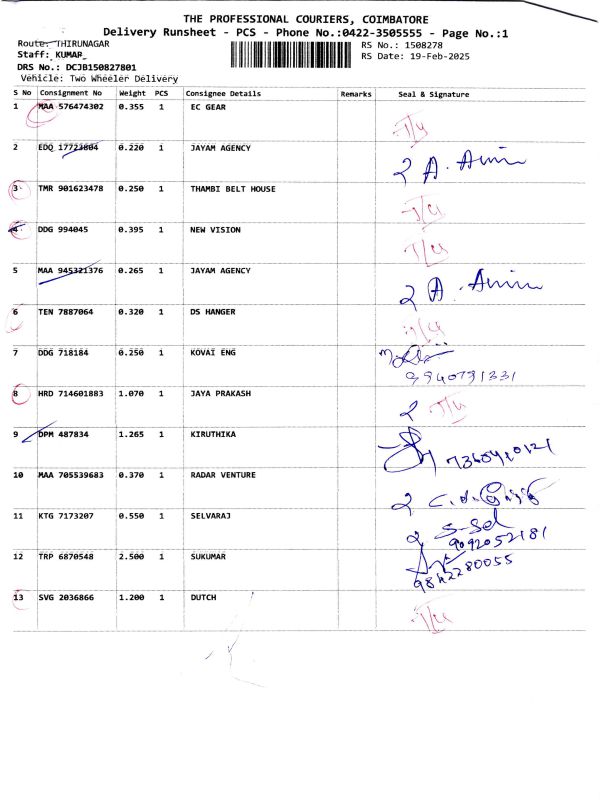 THE PROFESSIONAL COURIERS, COIMBATORE
Delivery Runsheet - PCS - Phone No.:0422-3505555 - Page No.:1
Route: THIRUNAGAR RS No.: 1508278
Staff: KUMAR RS Date: 19-Feb-2025
DRS No.: DCJB150827801
Vehicle: Two Wheeler Delivery
S No Consignment No Weight PCS Consignee Details Remarks Seal & Signature
1 MAA 576474302 0.355 1 EC GEAR
2 EDQ 17723804 0.220 1 JAYAM AGENCY A. Amin
3 TMR 901623478 0.250 1 THAMBI BELT HOUSE
4 DDG 994045 0.395 1 NEW VISION
5 MAA 945321376 0.265 1 JAYAM AGENCY A. Amin
6 TEN 7887064 0.320 1 DS HANGER
7 DDG 718184 0.250 1 KOVAI ENG
9940791331
8 HRD 714601883 1.070 1 JAYA PRAKASH
9 DPM 487834 1.265 1 KIRUTHIKA
10 MAA 705539683 0.370 1 RADAR VENTURE
11 KTG 7173207 0.550 1 SELVARAJ S-Sel
9092052181
12 TRP 6870548 2.500 1 SUKUMAR
9842280055
13 SVG 2036866 1.200 1 DUTCH